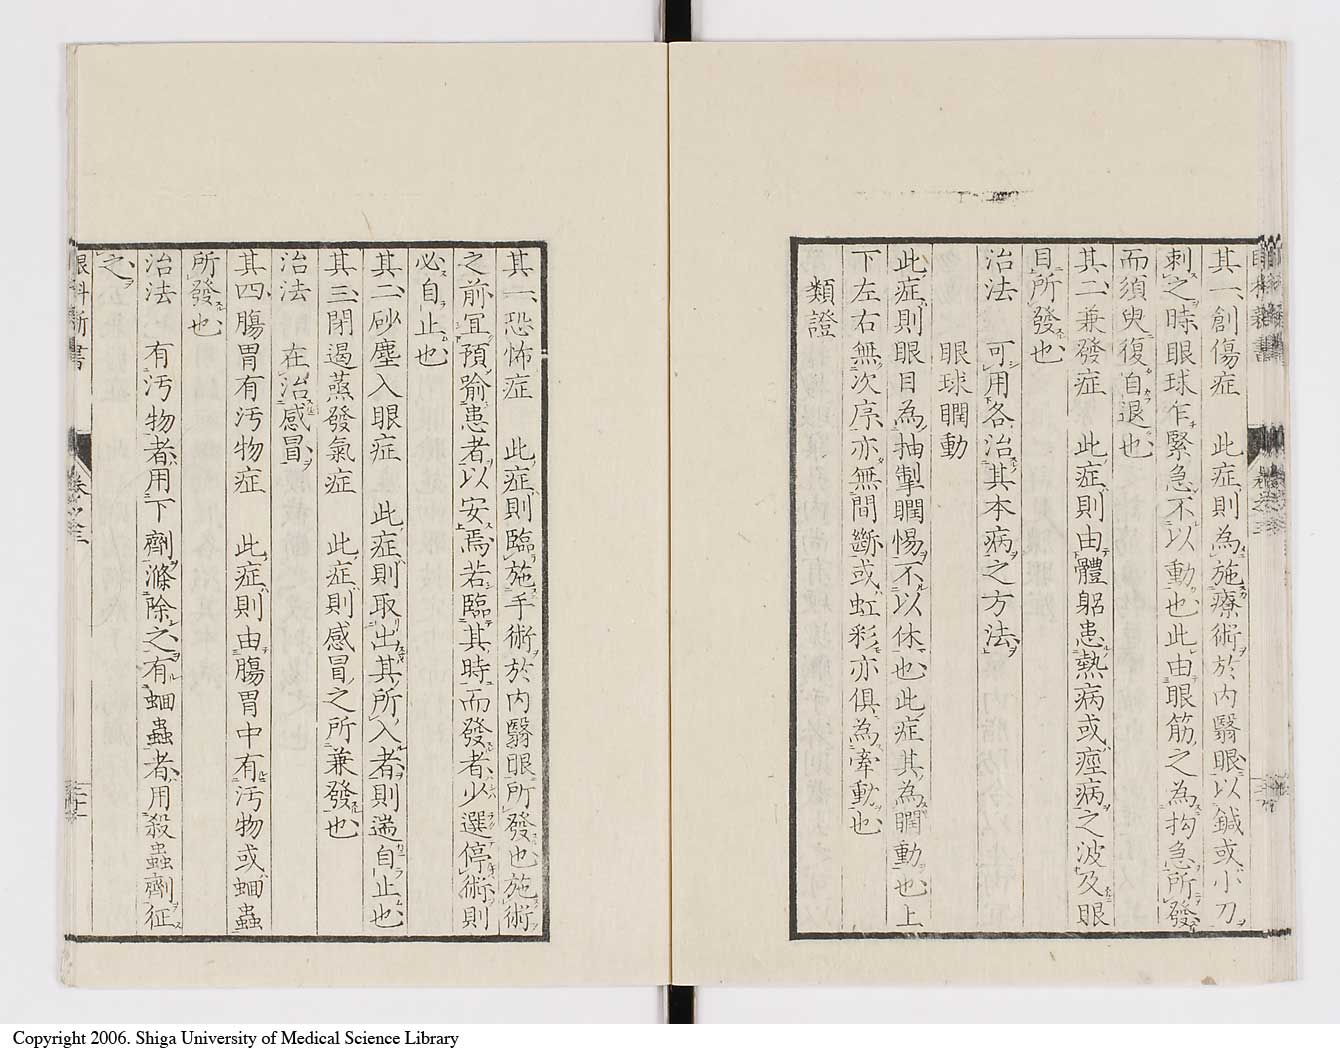 其一、創傷症　此症則為施療術於内翳眼以鍼或小刀
刺之時眼球乍緊急不以動也此由眼筋之為拘急所發
而須臾復自退也
其二、兼發症　此症則由體軀患熱病或痙病之波及眼
目所發也
治法　可用各治其本病之方法
眼球瞤動
此症則眼目為抽掣瞤惕不以休也此症其為瞤動也上
下左右無次序亦無間斷或虹彩亦俱為牽動也
類證
其一、恐怖症　此症則臨施手術於内翳眼所發也施術
之前冝預喻患者以安焉若臨其時而發者少選停術則
必自止也
其二、砂塵入眼症　此症則取出其所入者則遄自止也
其三、閉遏蒸發氣症　此症則感冒之所兼發也
治法　在治感冒
其四、腸胃有汚物症　此症則由腸胃中有汚物或蛔蟲
所發也
治法　有汚物者用下劑滌除之有蛔蟲者用殺蟲劑征
之
眼科新書　卷之三
Copyright 2006. Shiga University of Medical Science Library